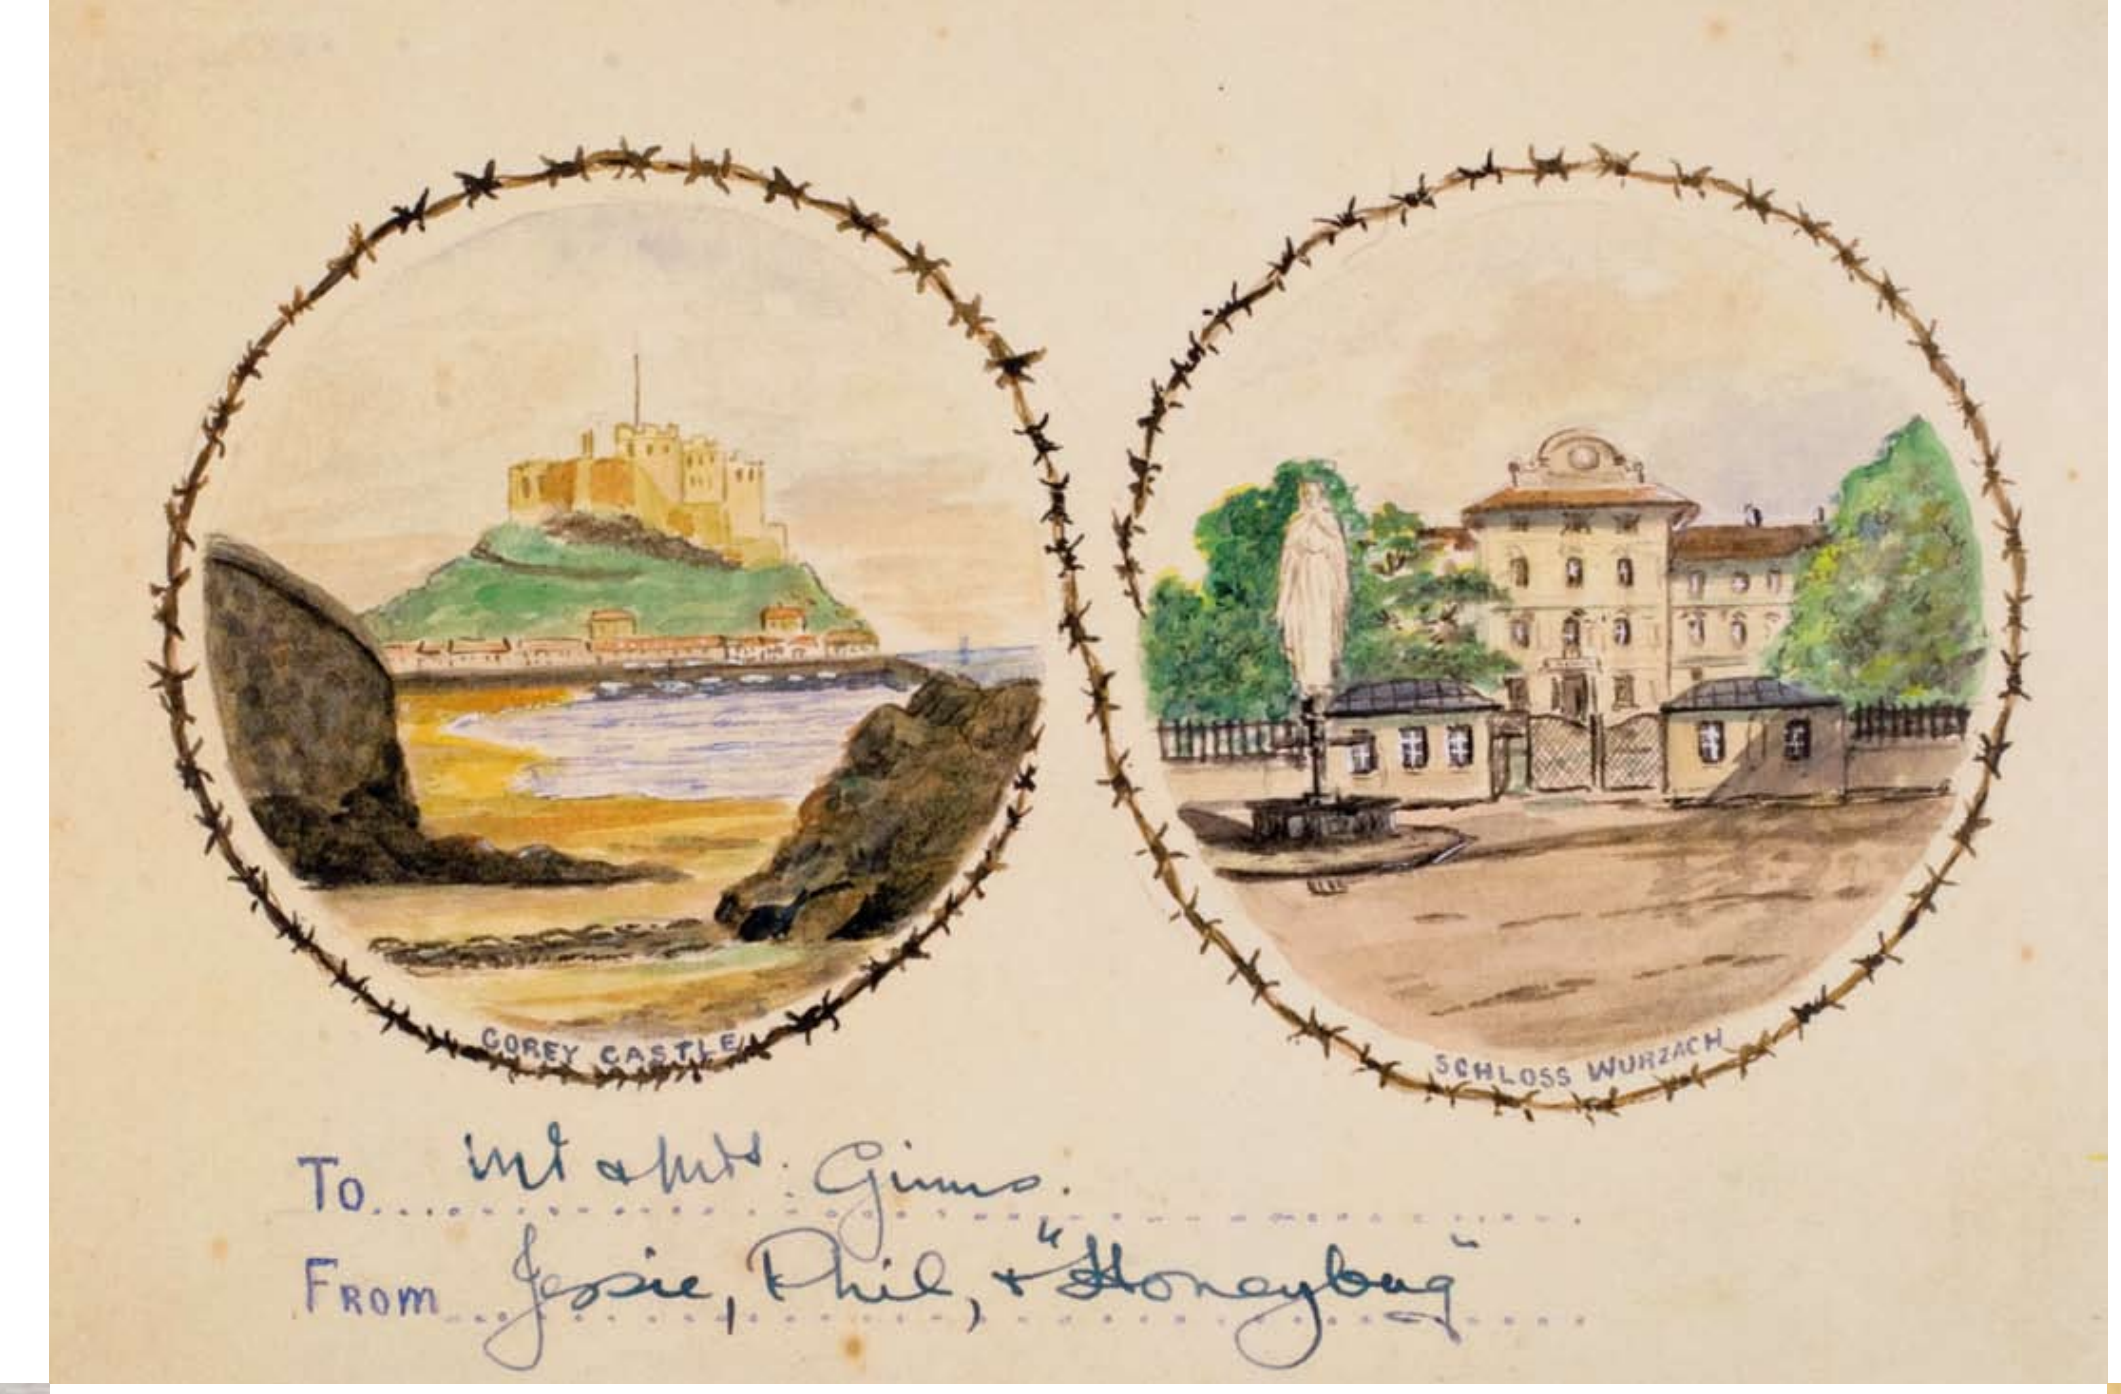 GOREY CASTLE
SCHLOSS WURZACH
To Mr & Mrs. Ginns.
From Jessie, Phil, & "Honeybug"